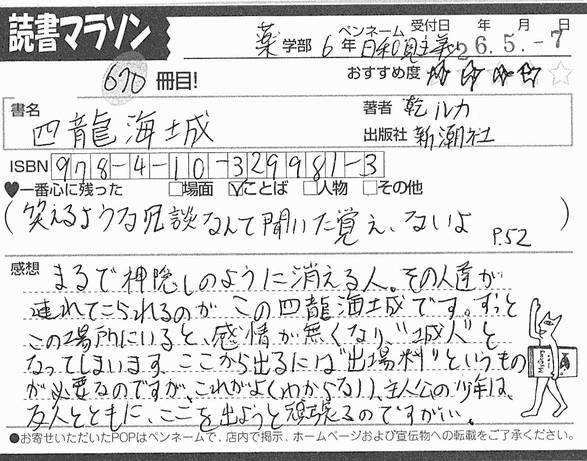 読書マラソン
ペンネーム 受付日 年 月 日
薬学部 6年 日和見主義 26.5.-7
おすすめ度 ☆☆☆☆☆
670冊目!
書名 著者 乾 ルカ
四龍海城 出版社 新潮社
ISBN 978-4-10-329981-3
♥一番心に残った □場面 ☑ことば □人物 □その他
(笑えるような冗談なんて聞いた覚え、ないよ P.52)
感想 まるで神隠しのように消える人。その人達が
連れてこられるのが この四龍海城です。ずっと
この場所にいると、感情が無くなり、"城人"と
なってしまいます。ここから出るには"出場料"というもの
が必要なのですが、これがよくわからない!、主人公の少年は、
友人とともに、ここを出ようと頑張るのですがい。
●お寄せいただいたPOPはペンネームで、店内で掲示、ホームページおよび宣伝物への転載をご了承ください。